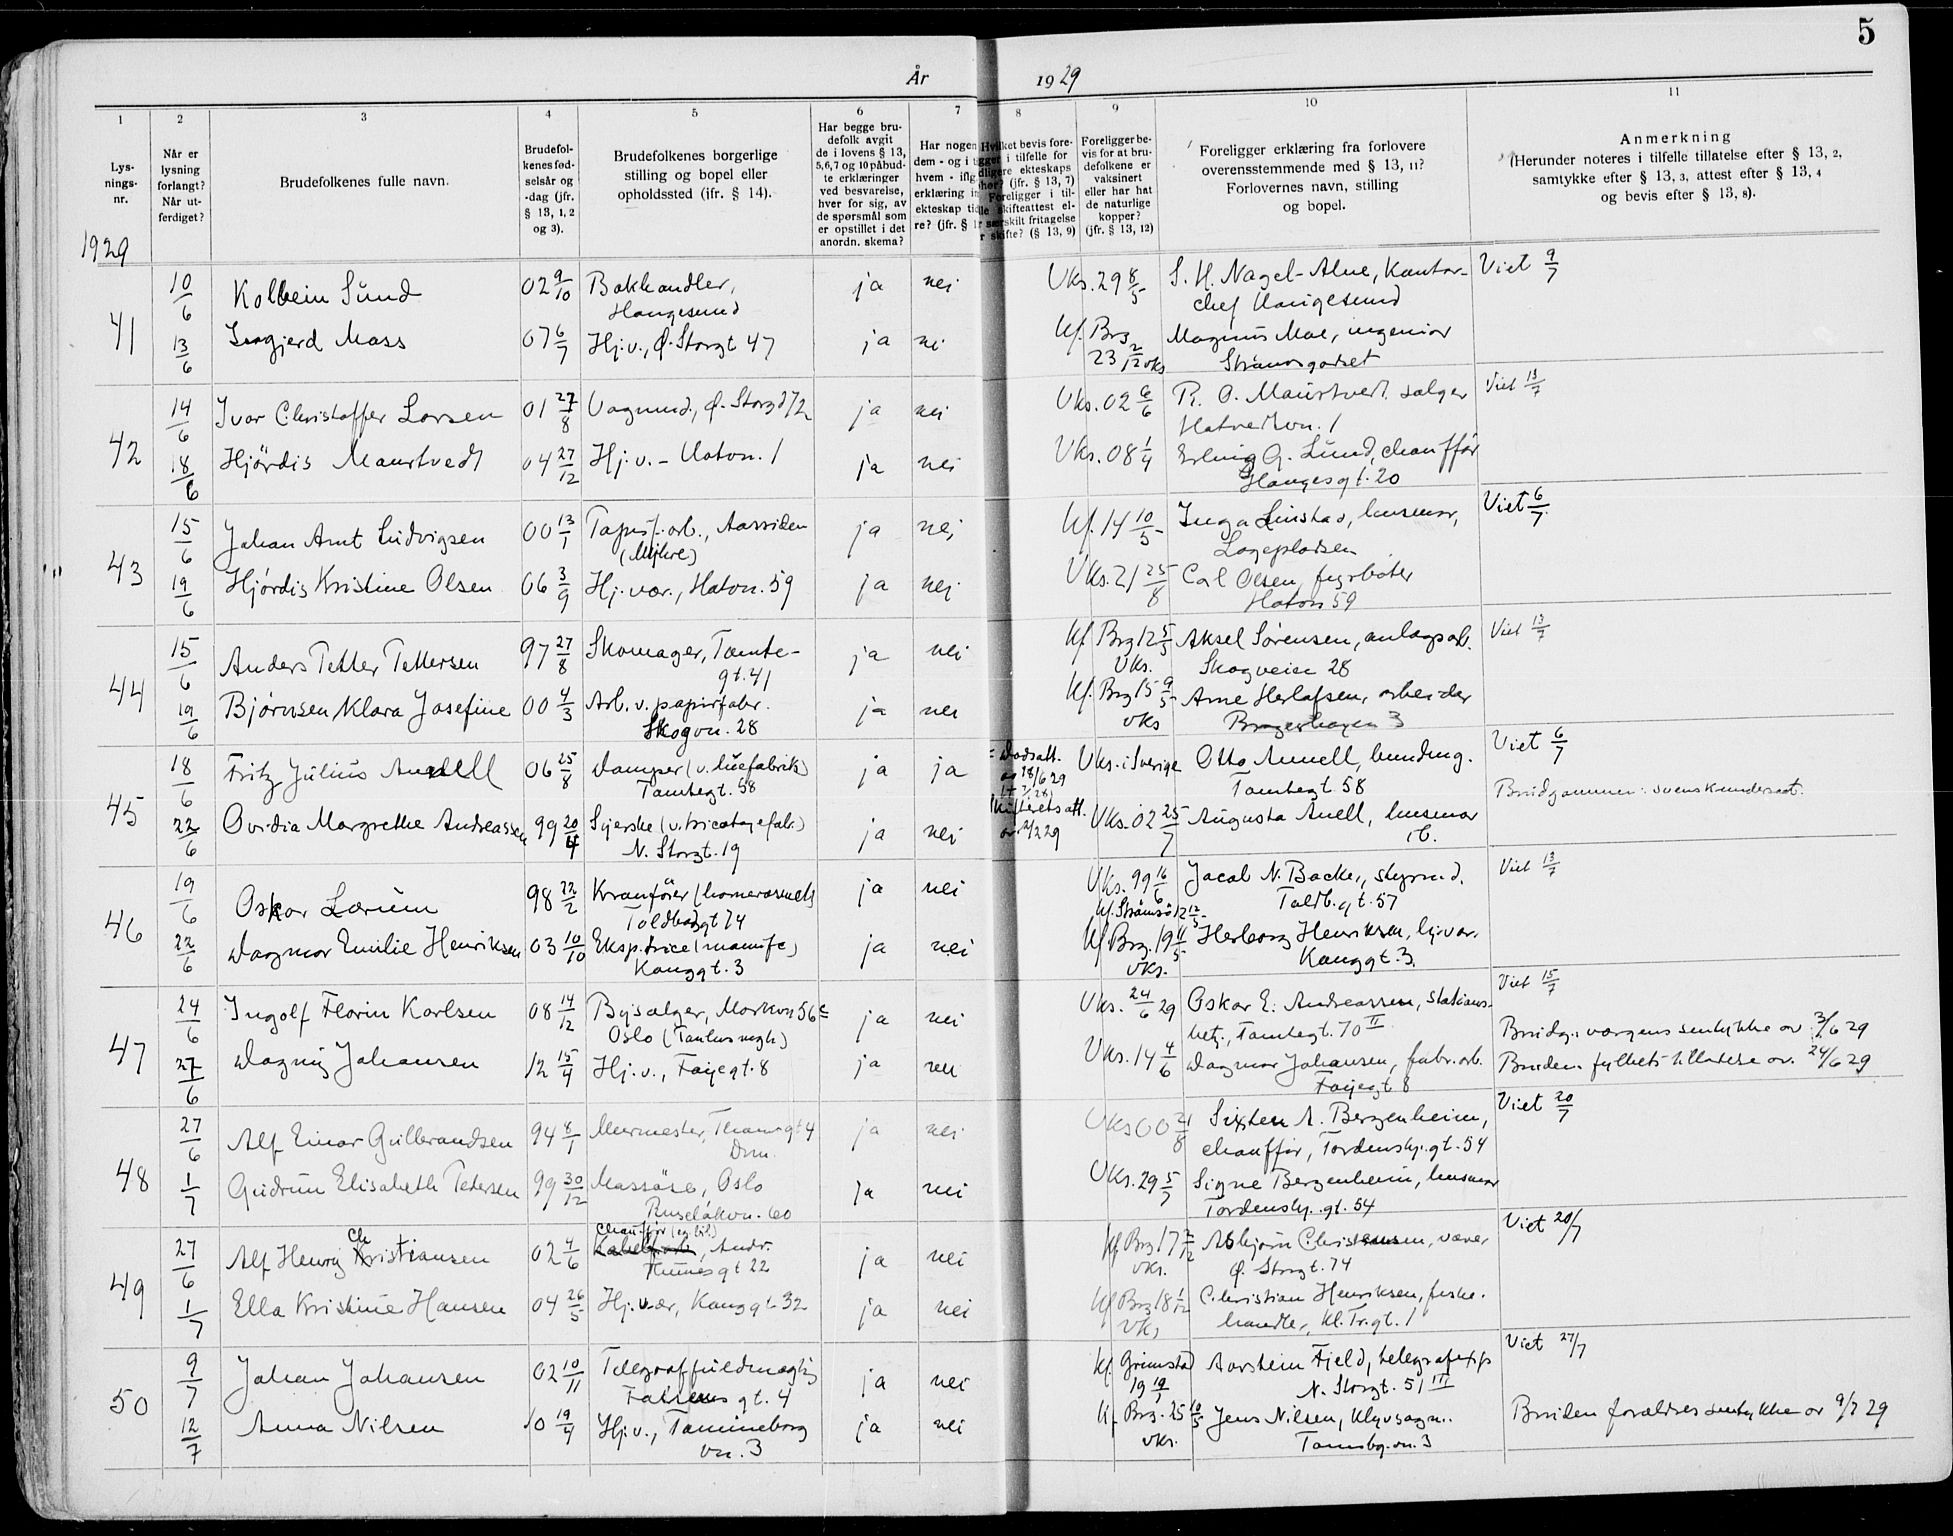 5
År 1929
1 2 3 4 5 6 7 8 9 10 11
Lys-
nings-
nr.
Når er
lysning
forlangt?
Når ut-
ferdiget?
Brudefolkenes fulle navn.
Brudefol-
kenes fød-
selsår og
-dag (jfr.
§ 13, 1, 2
og 3).
Brudefolkenes borgerlige
stilling og bopel eller
opholdssted (ifr. § 14).
Har begge bru-
defolk avgit
de i lovens § 13,
5,6,7 og 10 påbud-
te erklæringer
ved besvarelse,
hver for sig, av
de spørsmål som
er opstillet i det
anordn. skema?
Har nogen
dem - og i
hvem - ifig.
erklæring
ekteskap
re? (jfr. §
Hvilket bevis fore-
i tilfelle for
ekteskaps
(jfr. § 13, 7)
Foreligger i til-
skifteattest el-
særskilt fritagelse
skifte? (§ 13, 9)
Foreligger be-
vis for at bru-
defolkene er
vaksinert
eller har hat
de naturlige
kopper?
(jfr. § 13, 12)
Foreligger erklæring fra forlovere
overensstemmende med § 13, 11?
Forlovernes navn, stilling
og bopel.
Anmerkning
(Herunder noteres i tilfelle tillatelse efter § 13, 2,
samtykke efter § 13, 3, attest efter § 13, 4
og bevis efter § 13, 8).
1929
41
10/6 Kolbein Sund 02 9/10 Bokhandler, ja nei Vks. 29 8/5 S. H. Nagel-Alne, Kontor- Viet 9/7
Haugesund chef Haugesund
13/6 Mass 07 6/7 Hj.v., Ø. Storgt 47 ja nei kf. Brg Magnus Moe, ingeniør
23 2/12 vks Strømsgodset
42
14/6 Ivar Christoffer Larsen 01 27/8 Vognmd., Ø. Storgt 72 ja nei Vks. 02 6/6 R. O. Maurtvedt, sælger Viet 13/7
Hatvedtvn. 1
18/6 Hjørdis Maurtvedt 04 27/12 Hj.v. - Hatvn. 1 ja nei Vks. 08 1/4 Erling G. Lund, chauffør
Haugesgt. 20
43
15/6 Johan Arnt Ludvigsen 00 13/1 arb., Aassiden ja nei kf. 14 10/5 Inga Linstad, husmor, Viet 6/7
Lageplassen
19/6 Hjørdis Kristine Olsen 06 3/9 Hj. vær., Hatvn. 59 ja nei Vks. 21 25/8 Carl Olsen, fyrbøter
Hatvn 59
44
15/6 Anders Petter Pettersen 97 27/8 Skomager, Tomte- ja nei kf Brg 12 5/5 Aksel Sørensen, anlagsarb. Viet 13/7
gt. 41 Vks. Skogveien 28
19/6 Bjørnsen Klara Josefine 00 4/3 Arb. v. papirfabr. ja nei kf. Brg 15 9/5 Arne Herlofsen, arbeider
Skogvn. 28 vks Bragerhagen 3
45
18/6 Fritz Julius Anell 06 25/8 Damper (v. huefabrik) ja ja Dødsatt. Vks. i Sverige Otto Annell, bundtmg. Viet 6/7
Tomtegt. 58 av 18/6 29 Tomtegt 58
Brudgommen: svensk undersaat.
22/6 Ovidia Margrethe Andreassen 99 20/4 Syerske (v. tricotagefabr.) ja nei Skifterets att. Vks. 02 25/7 Augusta Anell, husmor
N. Storgt. 19 ib.
46
19/6 Oskar Lærum 98 22/2 Kranfører ja nei Vks. 99 16/6 Jacob N. Backer, styrmd. Viet 13/7
Toldbodgt 74 kf. Strømsø 12 12/5 Toldb. gt. 57
22/6 Dagmar Emilie Henriksen 03 10/10 Eksp.trice (manufc) ja nei kf Brg. 19 4/5 Herborg Henriksen, hj.vær.
Konggt. 3 vks. Konggt. 3.
47
24/6 Ingolf Florin Karlsen 08 14/12 Bysælger, Markvn 56c ja nei Vks. 24/6 29 Oskar E. Andreassen, stations- Viet 15/7
Oslo betj., Tomtegt. 70 II Brudg. værgens samtykke av 3/6 29
27/6 Dagny Johansen 12 15/4 Hj. v., Fayegt. 8 ja nei Vks. 14 4/6 Dagmar Johansen, fabr.arb. Bruden: fylkets tillatelse av. 24/6 29
Fayegt 8
48
27/6 Alf Einar Gulbrandsen 94 8/1 Murmester, Thomsgt 4 ja nei Vks 00 21/8 Sixten A. Bergenheim, Viet 20/7
Drm. chauffør, Tordenskj. gt. 54
1/7 Gudrun Elisabeth Petersen 99 30/12 Massøse, Oslo ja nei Vks. 29 5/7 Signe Bergenheim, husmor
Ruseløkvn. 60 Tordenskj. gt. 54
49
27/6 Alf Henry Christiansen 02 4/6 Chauffør (eg. bil) ja nei kf Brg 17 2/12 Asbjørn Christensen, væver Viet 20/7
Andr. Thunesgt 22 vks. Ø. Storgt. 74
1/7 Ella Kristine Hansen 04 26/5 Hj. vær, Konggt. 32 ja nei kf Brg 18 1/12 Christian Henriksen, fiske-
Vks handler, Kl. Tr.gt. 1
50
9/7 Johan Johansen 02 10/11 Telegraffuldmægtig ja nei kf. Grimstad Aarstein Fjeld, telegrafexp Viet 27/7
gt. 4 19 N. Storgt. 51 III
12/7 Anna Nilsen 10 19/4 Hj. v., Tomineborg ja nei kf Brg. 25 10/5 Jens Nilsen, Klyvsagm. Bruden forældres samtykke av 9/7 29
vn. 3 vks. Tomsbg.vn. 3